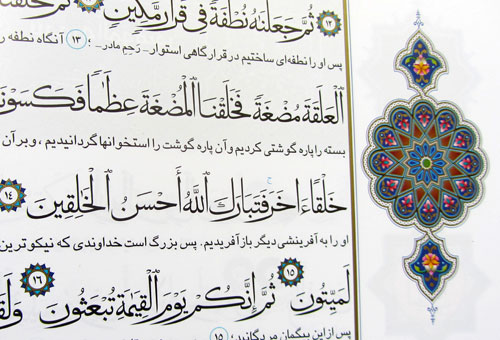 ١٢ ثُمَّ جَعَلْنَٰهُ نُطْفَةً فِى قَرَارٍ مَّكِينٍ ١٣ ثُمَّ خَلَقْنَا
پس او را نطفه‌ای ساختیم در قرارگاهی استوار- رَحِمِ مادر- ؛ ١٣ آنگاه نطفه را
ٱلْعَلَقَةَ مُضْغَةً فَخَلَقْنَا ٱلْمُضْغَةَ عِظَٰمًا فَكَسَوْنَا
بسته را پاره گوشتی کردیم و آن پاره گوشت را استخوانها گردانیدیم ، و بر آن
خَلْقًا ءَاخَرَ فَتَبَارَكَ ٱللَّهُ أَحْسَنُ ٱلْخَٰلِقِينَ ١٤
او را به آفرینشی دیگر باز آفریدیم. پس بزرگ است خداوندی که نیکوترین
لَمَيِّتُونَ ١٥ ثُمَّ إِنَّكُمْ يَوْمَ ٱلْقِيَٰمَةِ تُبْعَثُونَ ١٦ وَلَقَ
پس از این بیگمان مردگانید؛ ١٥